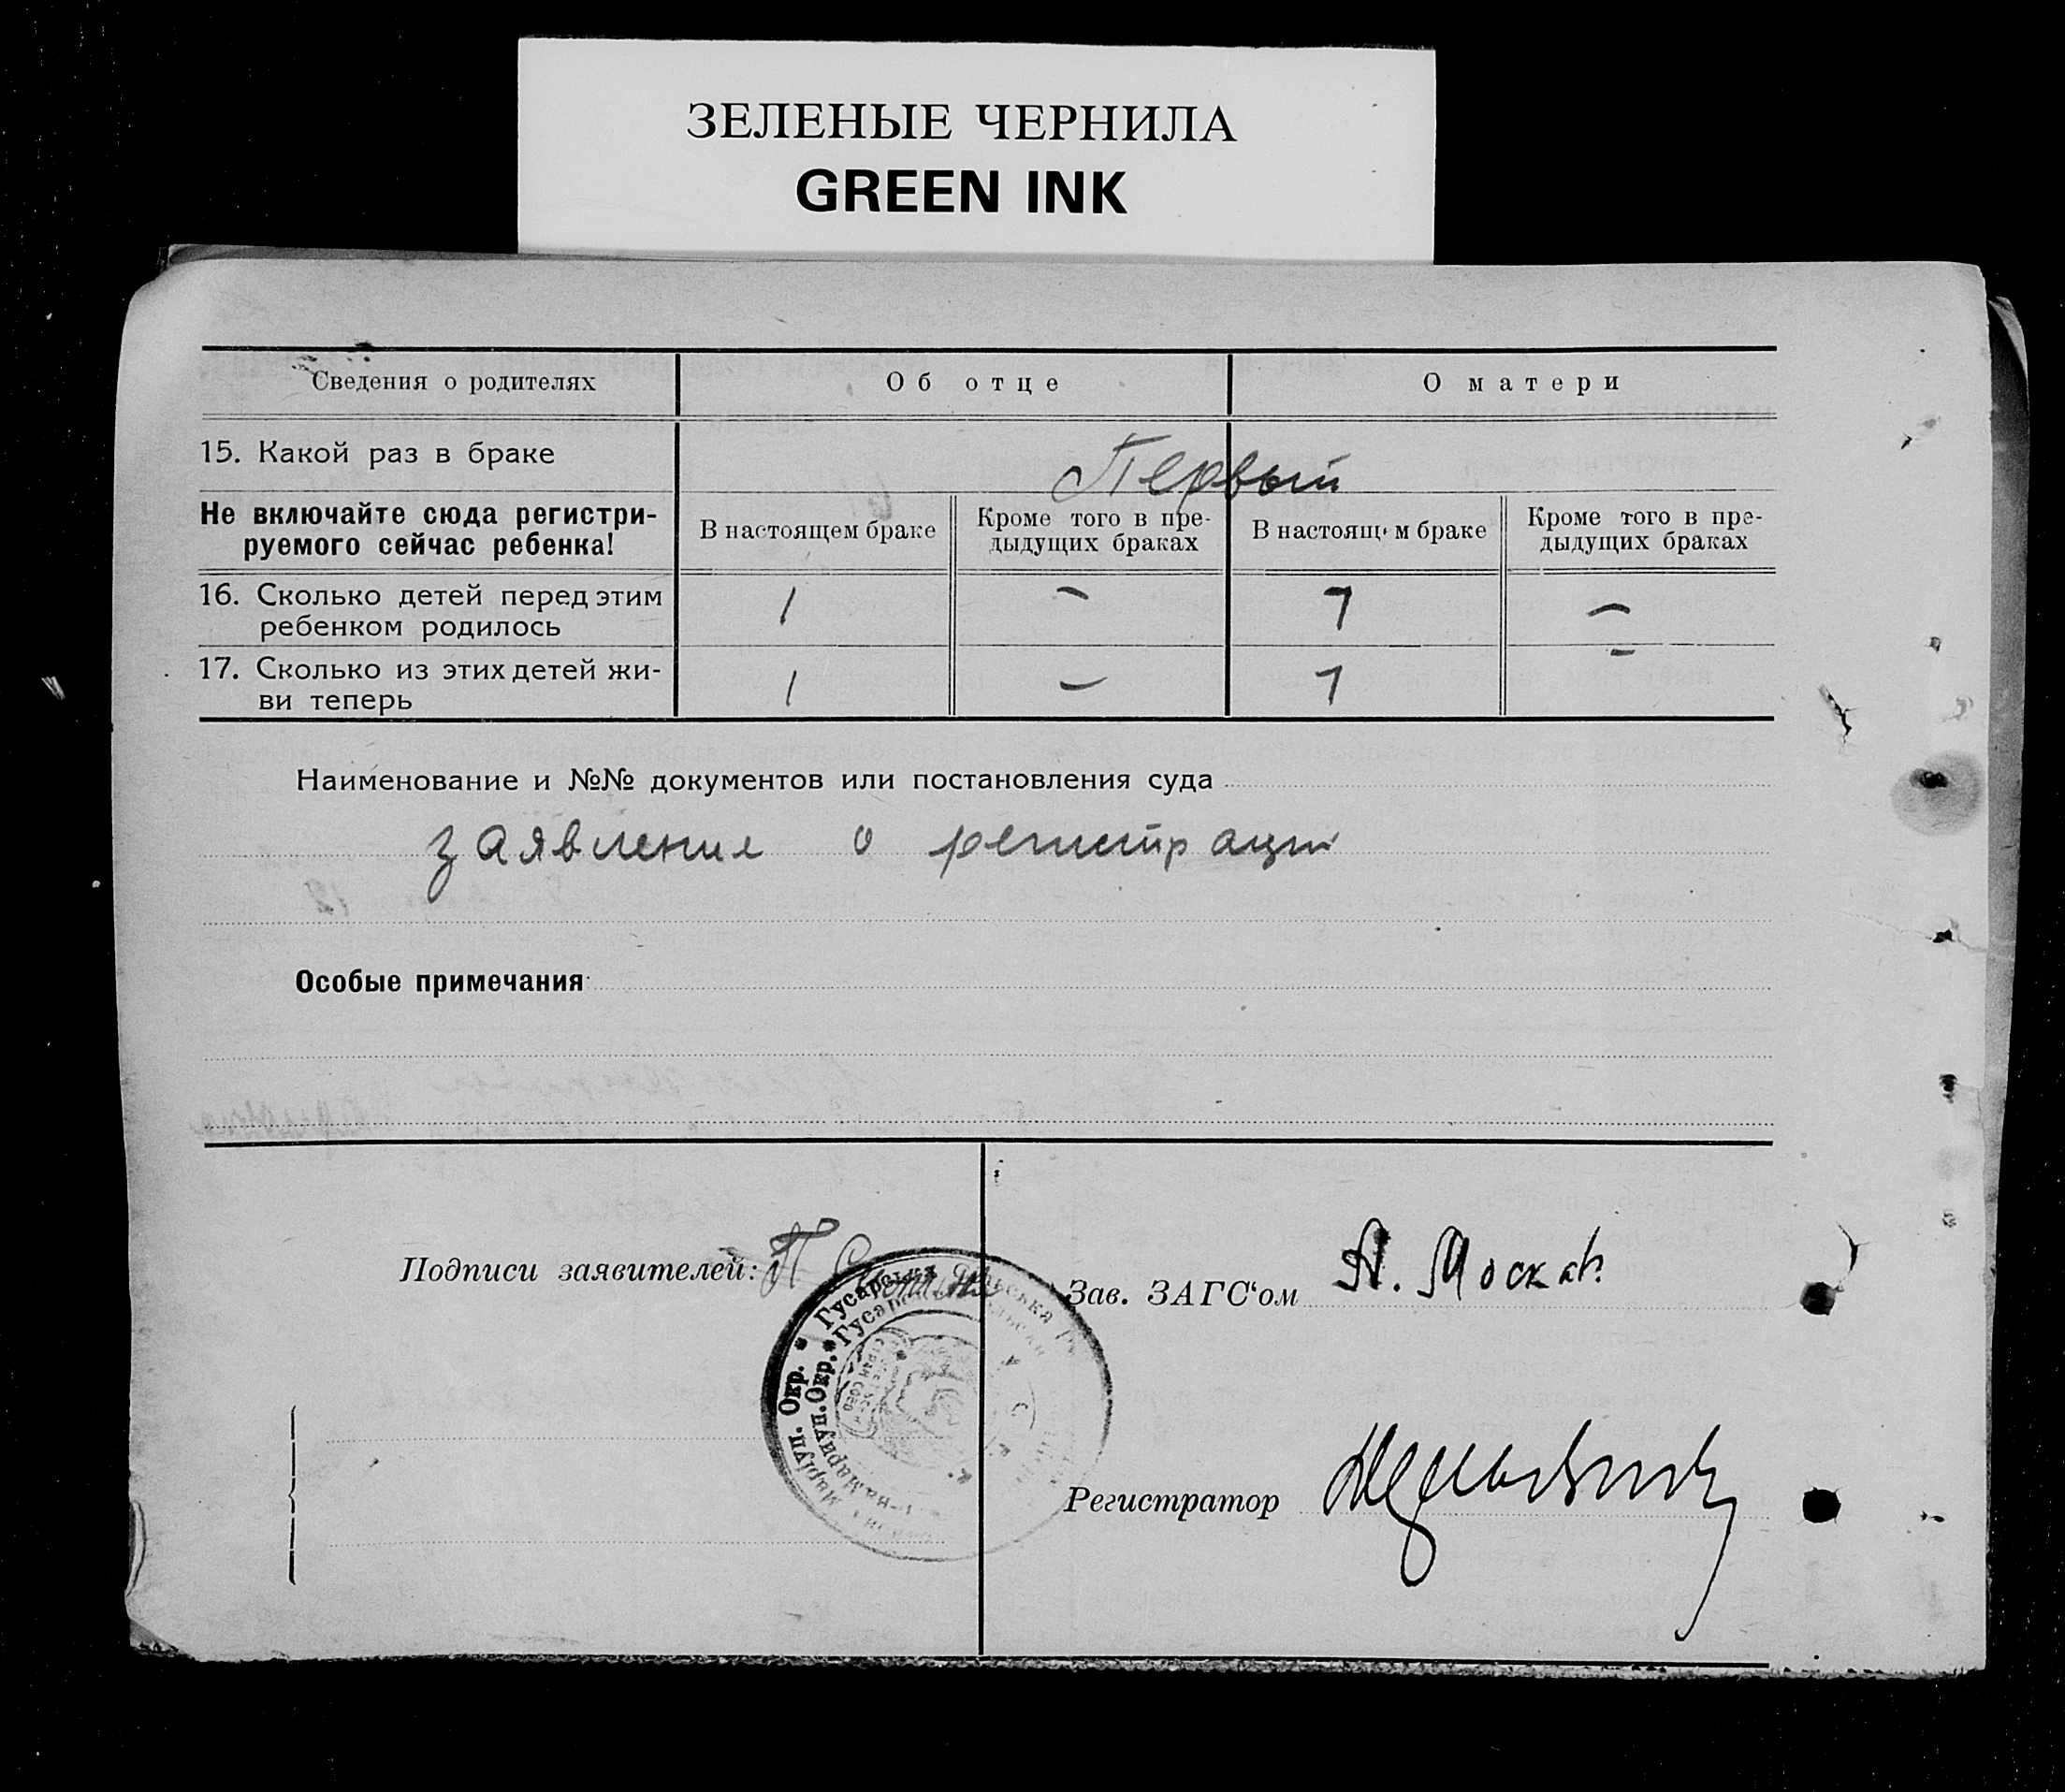 ЗЕЛЕНЫЕ ЧЕРНИЛА
GREEN INK
Сведения о родителях
Об отце
О матери
15. Какой раз в браке
Первый
Не включайте сюда регистри-
руемого сейчас ребенка!
В настоящем браке
Кроме того в пре-
дыдущих браках
В настоящ м браке
Кроме того в пре-
дыдущих браках
16. Сколько детей перед этим
ребенком родилось
1 – 1 –
17. Сколько из этих детей жи-
ви теперь
1 – 1 –
Наименование и №№ документов или постановления суда
заявление о регистрации
Особые примечания
Подписи заявителей:
Зав. ЗАГС'ом
Регистратор
Гусарська
Окр.
Гусарс
Маріуп. Окр.